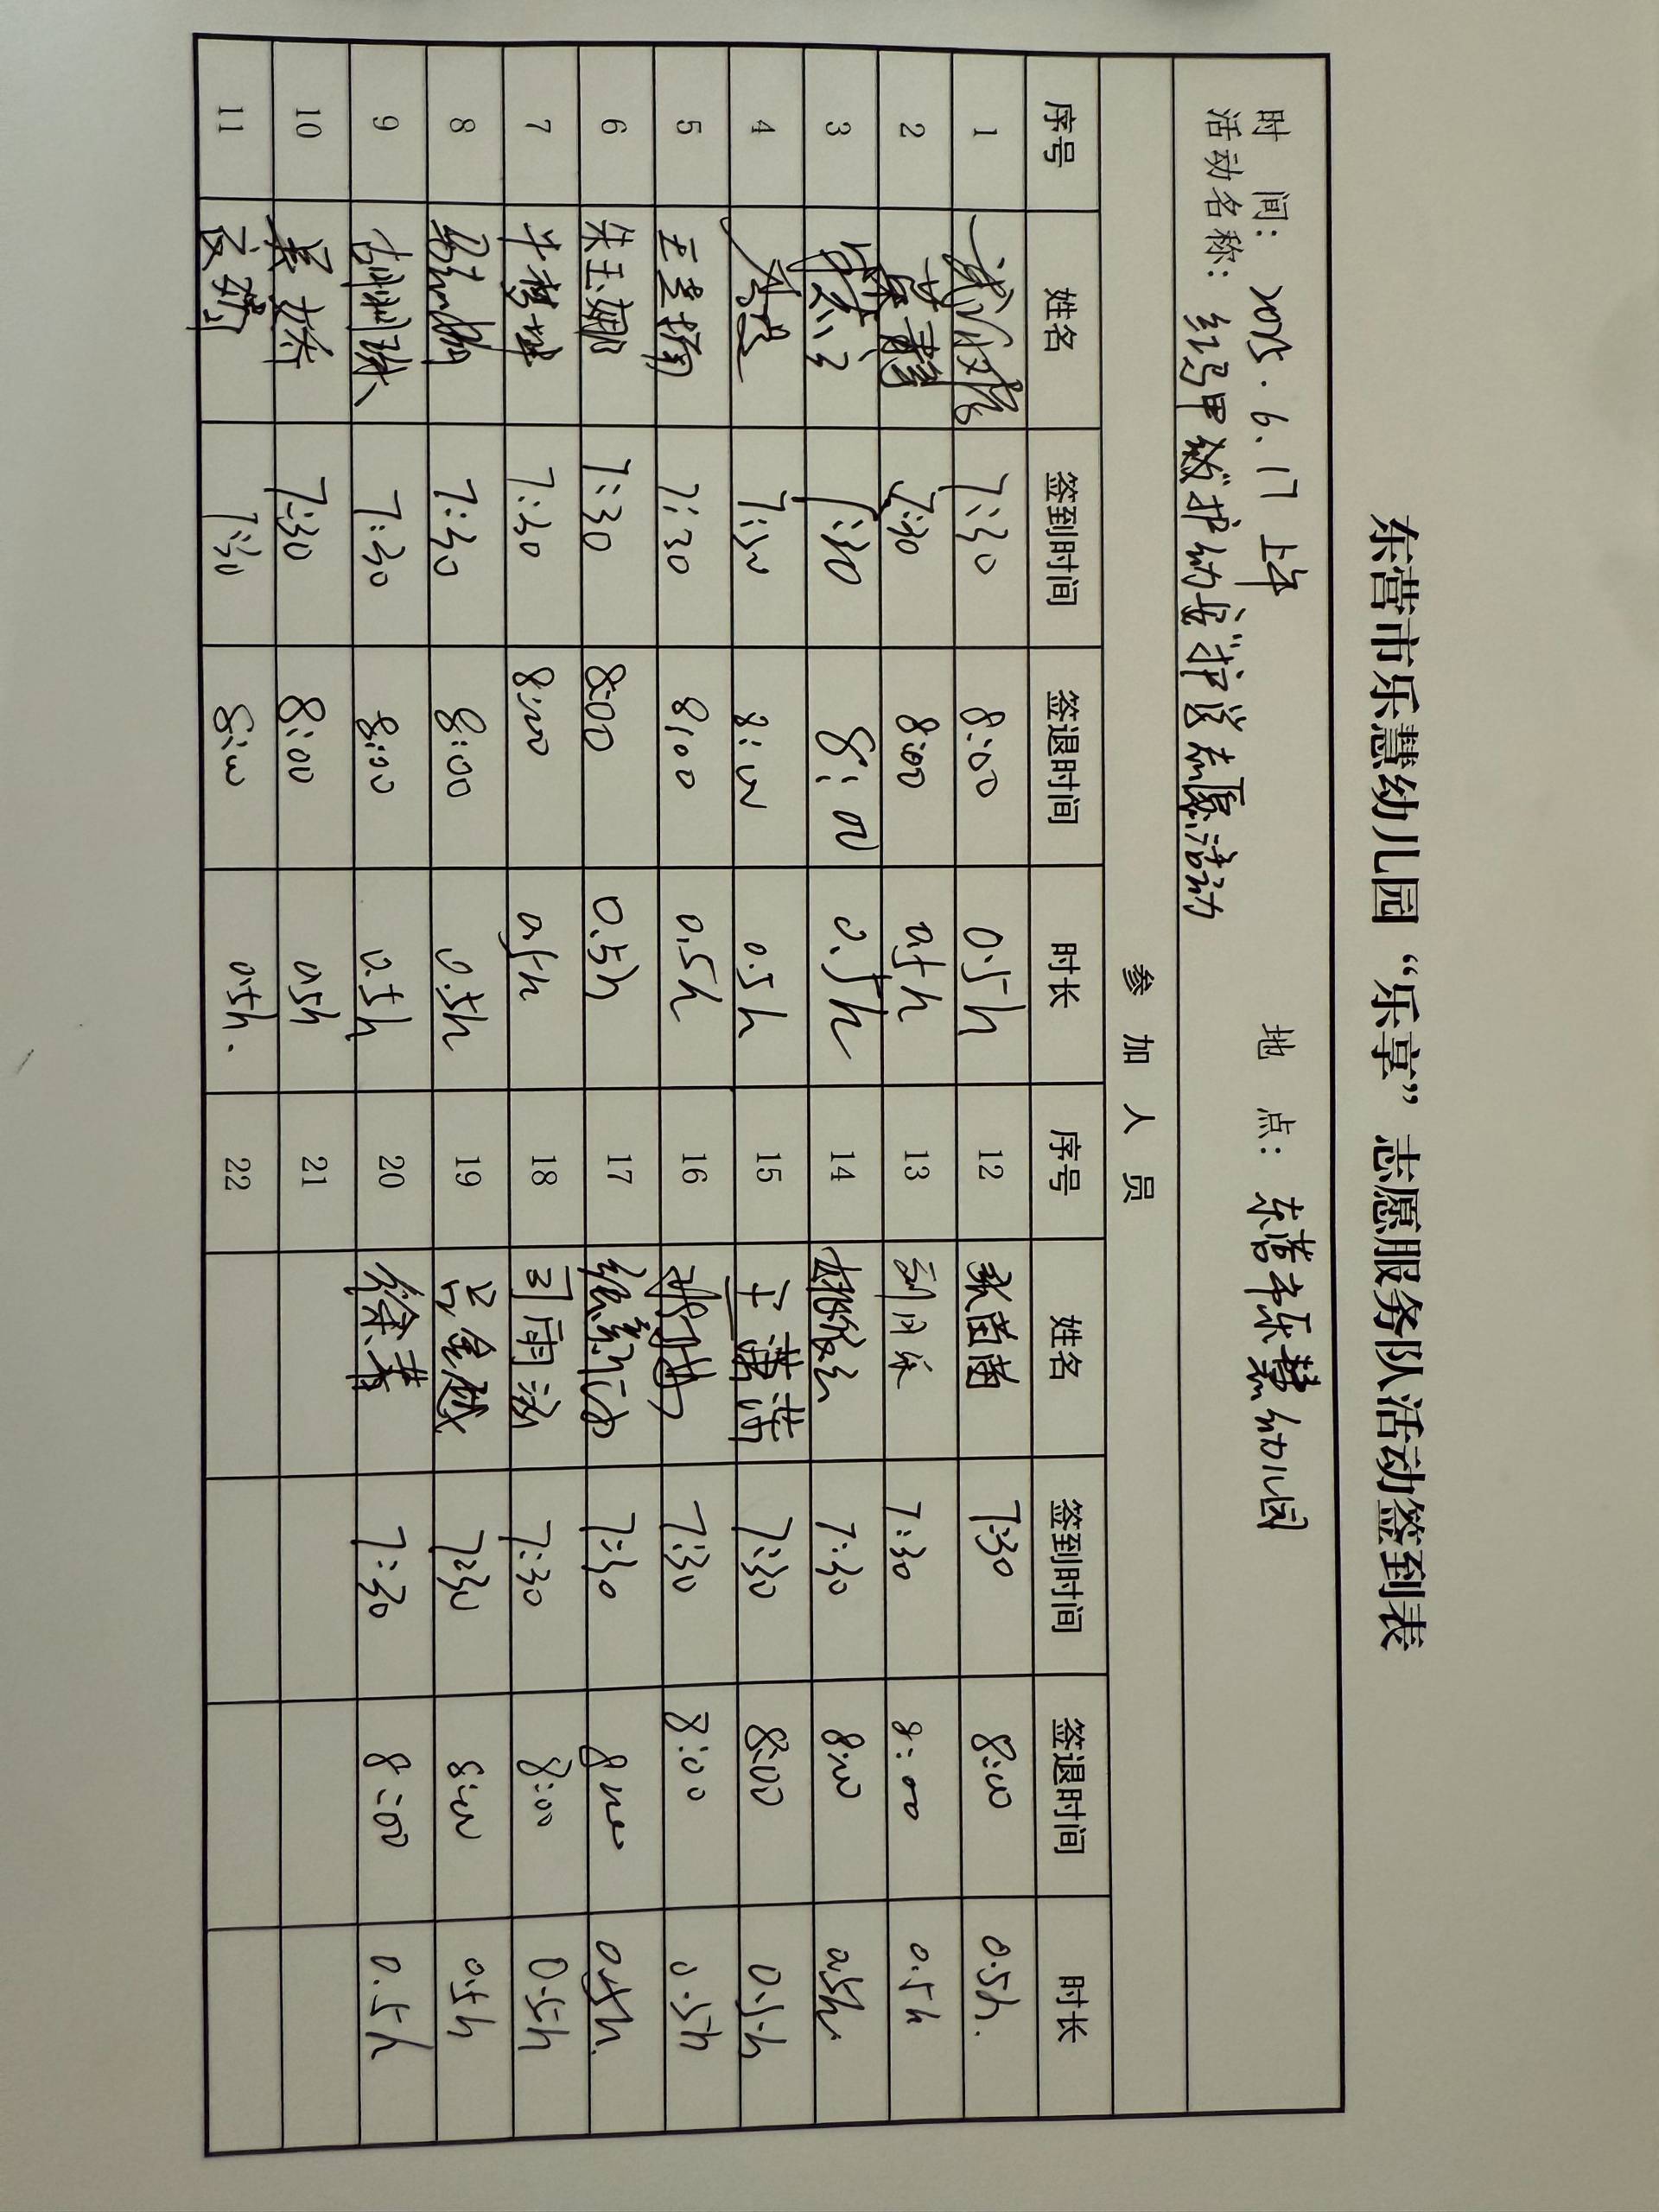 东营市乐慧幼儿园“乐享”志愿服务队活动签到表
时 间： 2025.6.17 上午 地 点： 东营市乐慧幼儿园
活动名称： 红马甲 护幼安 护送志愿活动
参 加 人 员
序号 姓名 签到时间 签退时间 时长 序号 姓名 签到时间 签退时间 时长
1 7:30 8:00 0.5h 12 张茵茵 7:30 8:00 0.5h.
2 7:30 8:00 0.5h 13 7:30 8:00 0.5h
3 7:30 8:00 0.5h 14 7:30 8:00 0.5h
4 7:30 8:00 0.5h 15 王潇潇 7:30 8:00 0.5h
5 7:30 8:00 0.5h 16 7:30 8:00 0.5h
6 朱玉娜 7:30 8:00 0.5h 17 7:30 8:00 0.5h.
7 7:30 8:00 0.5h 18 司雨涵 7:30 8:00 0.5h
8 7:30 8:00 0.5h 19 吕金越 7:30 8:00 0.5h
9 7:30 8:00 0.5h 20 徐青 7:30 8:00 0.5h
10 7:30 8:00 0.5h 21
11 7:30 8:00 0.5h. 22